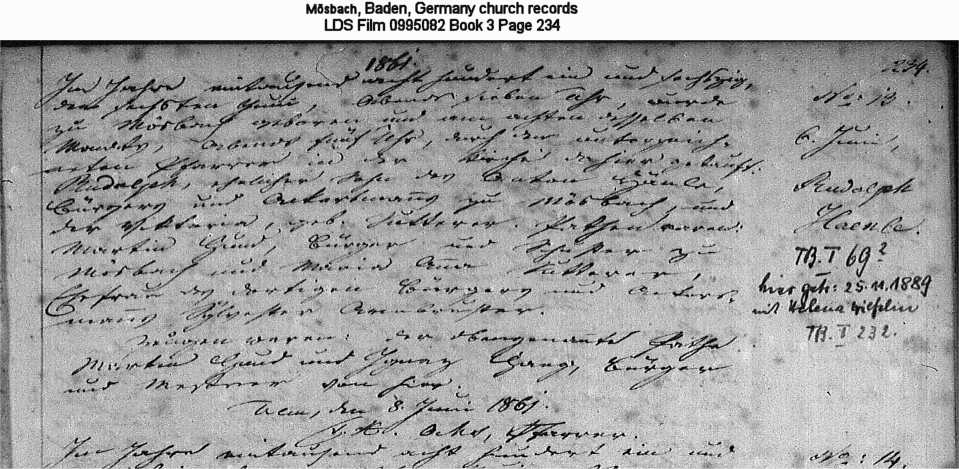 Mösbach, Baden, Germany church records
LDS Film 0995082 Book 3 Page 234
1861.
234.
Im Jahre eintausend acht hundert ein und sechszig,
den sechsten Juni, Abends sieben Uhr, wurde
zu Mösbach geboren und am achten desselben
Monats, Abends fünf Uhr, durch den unterzeich-
neten Pfarrer in der Kirche dahier getauft:
Rudolph, ehelicher Sohn des Anton Hänle,
Bürgers und Ackersmanns zu Mösbach, und
der Viktoria, geb. Sutterer. Pathen waren:
Martin Hund, Bürger und zu
Mösbach und Maria Anna Sutterer,
Ehefrau des dortigen Bürgers und Ackers-
manns Sylvester Armbruster.
Zeugen waren: der obengenannte Pathe
Martin Hund und Ignaz Bürger
und Mesner von hier.
Ulm, den 8. Juni 1861.
Pfarrer.
Im Jahre eintausend acht hundert ein und
No: 13.
6. Juni,
Rudolph
Haenle.
TB. I 69²
hier getr: 25.11.1889
mit Helena
TB. I 232.
No: 14.